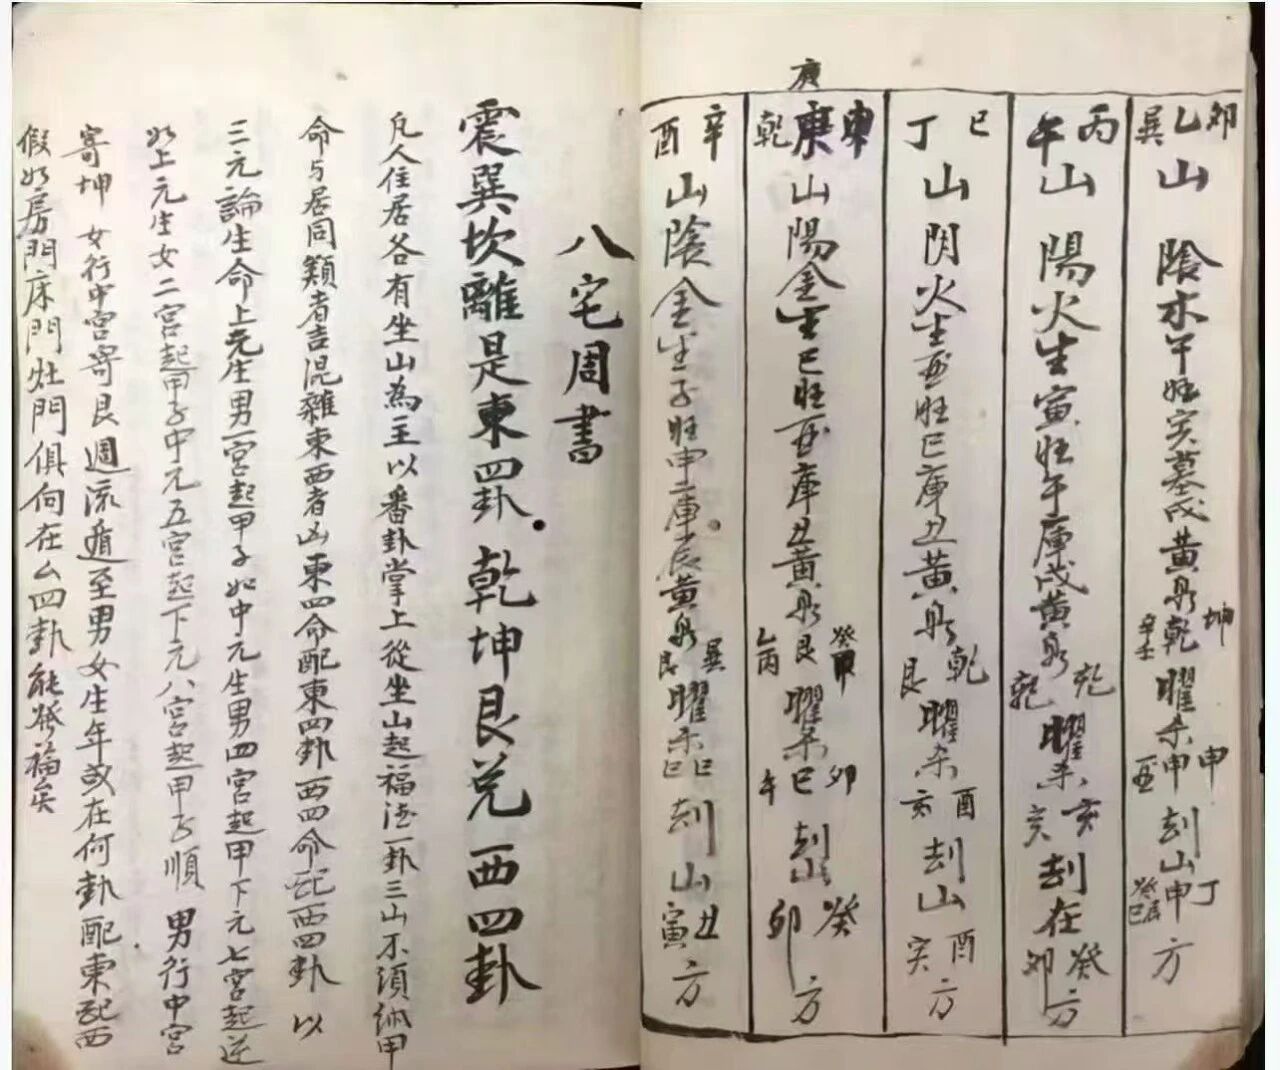 卯乙巽山陰木午旺亥墓戌黃泉坤乾辛壬曜杀申申酉刦山丁申癸辰巳方
丙午山陽火生寅旺午庫戌黃泉乾乾曜杀亥亥刦在癸卯方
巳丁山阴火生酉旺巳庫丑黃泉乾艮曜杀酉亥刦山酉亥方
庚
申庚乾山陽金生巳旺酉庫丑黃泉艮癸甲乙丙曜杀卯巳午刦山癸卯方
辛酉山陰金生子旺申庫辰黃泉巽艮曜杀巳巳刦山丑寅方
八宅周書
震巽坎離是東四卦 乾坤艮兌西四卦
凡人住居各有坐山為主以番卦掌上從坐山起福德一卦三山不須納甲
命与居同類者吉混雜東西者凶東四命配東四卦西四命配西四卦以
三元論生命上元生男一宮起甲子如中元生男四宮起甲下元七宮起逆
如上元生女二宮起甲子中元五宮起下元八宮起甲子順男行中宮
寄坤女行中宮寄艮週流遁至男女生年或在何卦配東配西
假如房門床門灶門俱向在么四卦能發福矣